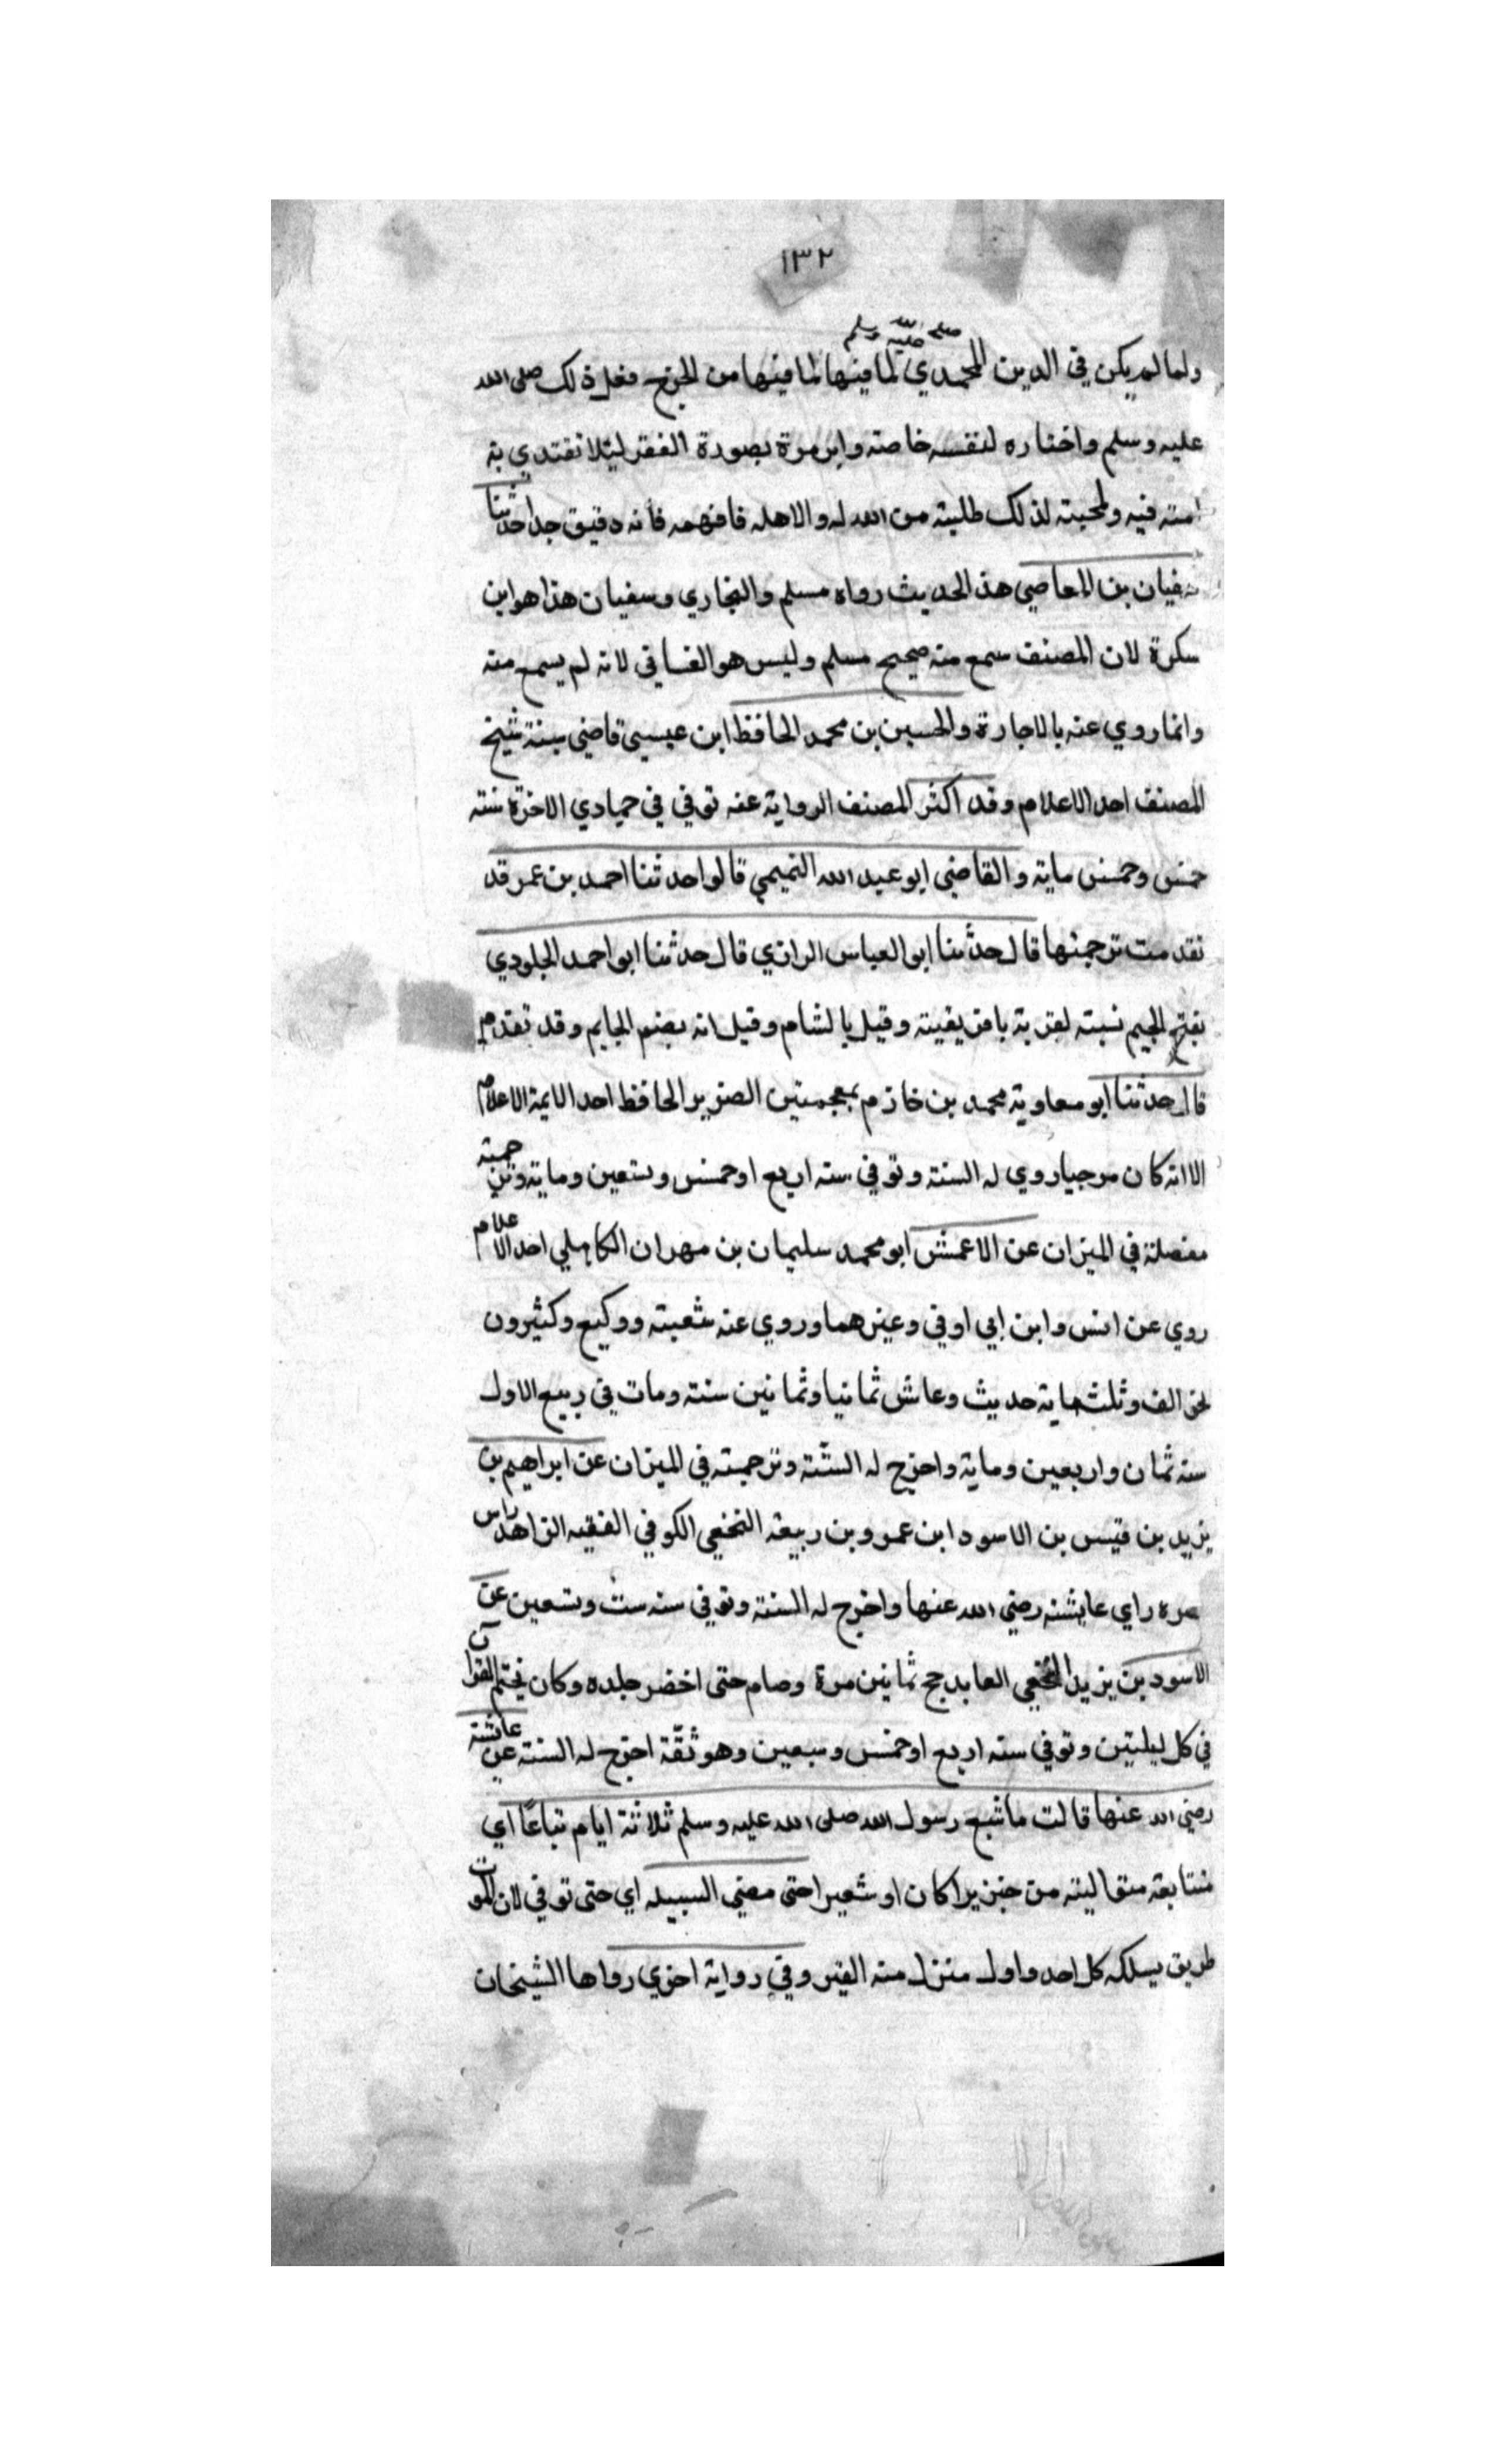 ١٣٢
صلى الله عليه وسلم
ولما لم يكن في الدين المحمدي لما فيها لما فيها من الحرج فعل ذلك صلى الله
عليه وسلم واختاره لنفسه خاصة وابرمرة بصورة الفقر ليئلا تقتدي به
امته فيه ولمحبته لذلك طلبته من الله له والاهله فافهمه فأنه دقيق جدا حدثنا
سفيان بن العاصي هذا الحديث رواه مسلم والبخاري وسفيان هذا هو ابن
سكرة لان المصنف سمع منه صحيح مسلم وليس هو الغساني لانه لم يسمع منه
وانما روي عنه بالاجازة والحسين بن محمد الحافظ ابن عيسى قاضي سبتة شيخ
المصنف احد الاعلام وقد اكثر المصنف الرواية عنه توفي في جمادي الاخرة سنة
خمس وخمس ماية والقاضي ابو عبد الله التميمي قالوا حدثنا احمد بن عمر قد
تقدمت ترجمتها قال حدثنا ابو العباس الرازي قال حدثنا ابو احمد الجلودي
بفتح الجيم نسبته لقرية بافريقية وقيل بالشام وقيل انه بضم الجايم وقد تقدم
قال حدثنا ابو معاوية محمد بن خازم بمعجمتين الضرير الحافظ احد الايمة الاعلام
الا انه كان مرجيا روي له الستة وتوفي سنه اربع او خمس وتسعين وماية وترجمته
مفصلة في الميزان عن الاعمش ابو محمد سليمان بن مهران الكاهلي احد الاعلام
روي عن انس وابن ابي اوفي وغيرهما وروي عنه شعبة ووكيع وكثيرون
نحو الف وثلثماية حديث وعاش ثمانيا وثمانين سنة ومات في ربيع الاول
سنه ثمان واربعين وماية واخرج له الستة وترجمته في الميزان عن ابراهيم بن
يزيد بن قيس بن الاسود ابن عمرو بن ربيعة النخعي الكوفي الفقيه الزاهد راس
عصره راي عايشة رضي الله عنها واخرج له الستة وتوفي سنه ست وتسعين عن
الاسود بن يزيد النخعي العابد حج ثمانين مرة وصام حتى اخضر جلده وكان يختم القرآن
في كل ليلتين وتوفي سنه اربع او خمس وسبعين وهو ثقة اخرج له الستة عن عائشة
رضي الله عنها قالت ما شبع رسول الله صلى الله عليه وسلم ثلاثة ايام تباعًا اي
متتابعة متوالية من خبز برا كان او شعيرا حتى مضي السبيله اي حتى توفي لان الموت
طريق يسلكه كل احد واول منزل منه القبر وفي رواية اخري رواها الشيخان